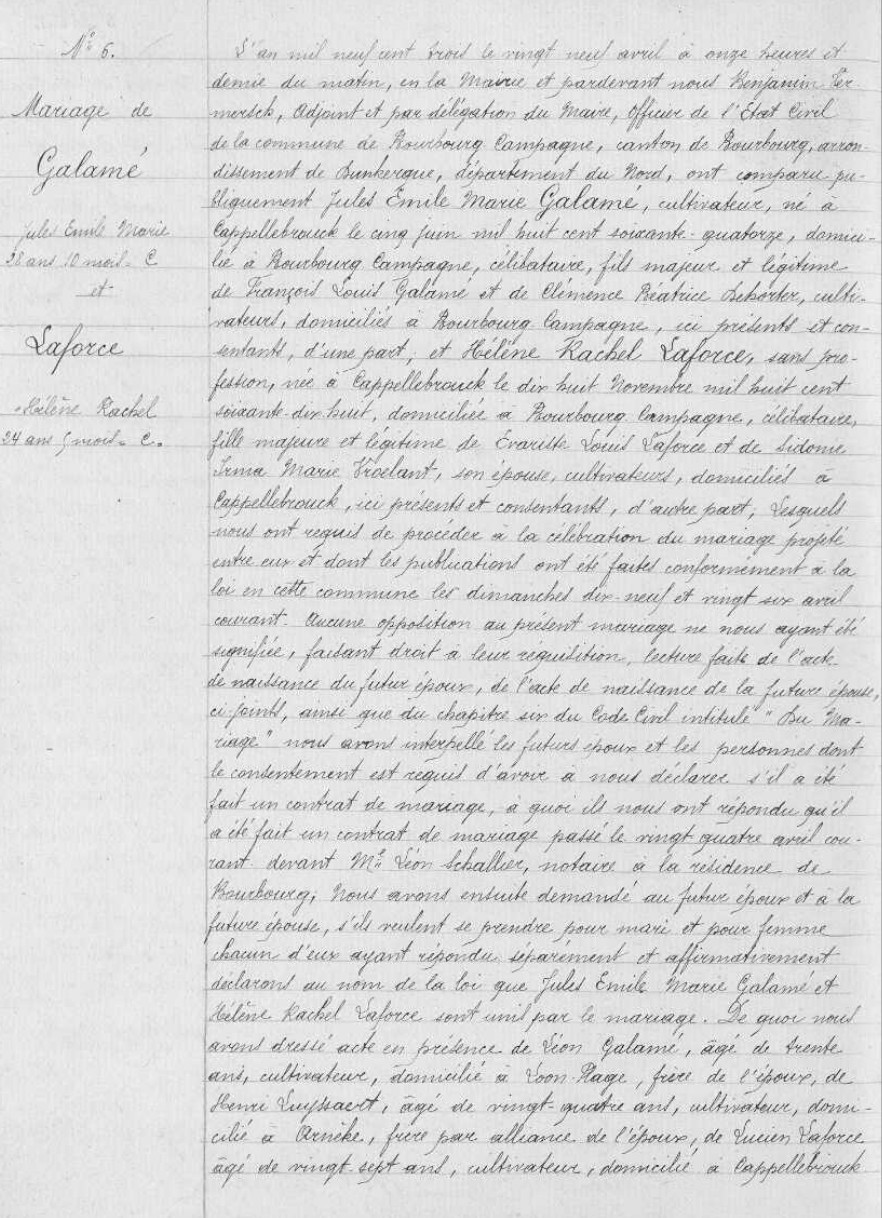 N° 6.
Mariage de
Galamé
Jules Emile Marie
28 ans 10 mois - C
et
Laforce
Hélène Rachel
24 ans 5 mois - C.
L'an mil neuf cent trois le vingt neuf avril à onze heures et
demie du matin, en la Mairie et pardevant nous Benjamin Ter-
mersch, Adjoint et par délégation du Maire, Officier de l'Etat Civil
de la commune de Bourbourg Campagne, canton de Bourbourg, arron-
dissement de Dunkerque, département du Nord, ont comparu pu-
bliquement Jules Emile Marie Galamé, cultivateur, né à
Cappellebrouck le cinq juin mil huit cent soixante-quatorze, domici-
lié à Bourbourg Campagne, célibataire, fils majeur et légitime
de François Louis Galamé et de Clémence Béatrice Dehorter, culti-
vateurs, domiciliés à Bourbourg Campagne, ici présents et con-
sentants, d'une part, et Hélène Rachel Laforce, sans pro-
fession, née à Cappellebrouck le dix huit Novembre mil huit cent
soixante-dix-huit, domiciliée à Bourbourg Campagne, célibataire,
fille majeure et légitime de Evariste Louis Laforce et de Sidonie
Irma Marie Vroelant, son épouse, cultivateurs, domiciliés à
Cappellebrouck, ici présents et consentants, d'autre part; Lesquels
nous ont requis de procéder à la célébration du mariage projeté
entre eux et dont les publications ont été faites conformément à la
loi en cette commune les dimanches dix-neuf et vingt six avril
courant. Aucune opposition au présent mariage ne nous ayant été
signifiée, faisant droit à leur réquisition, lecture faite de l'acte
de naissance du futur époux, de l'acte de naissance de la future épouse,
ci-joints, ainsi que du chapitre six du Code Civil intitulé "Du Ma-
riage" nous avons interpellé les futurs époux et les personnes dont
le consentement est requis d'avoir à nous déclarer s'il a été
fait un contrat de mariage, à quoi ils nous ont répondu qu'il
a été fait un contrat de mariage passé le vingt quatre avril cou-
rant devant Me Léon Schallier, notaire à la résidence de
Bourbourg; Nous avons ensuite demandé au futur époux et à la
future épouse, s'ils veulent se prendre pour mari et pour femme
chacun d'eux ayant répondu séparément et affirmativement
déclarons au nom de la loi que Jules Emile Marie Galamé et
Hélène Rachel Laforce sont unis par le mariage. De quoi nous
avons dressé acte en présence de Léon Galamé, âgé de trente
ans, cultivateur, domicilié à Loon-Plage, frère de l'époux, de
Henri Luyssaert, âgé de vingt-quatre ans, cultivateur, domi-
cilié à Arnèke, frère par alliance de l'époux, de Lucien Laforce
âgé de vingt sept ans, cultivateur, domicilié à Cappellebrouck